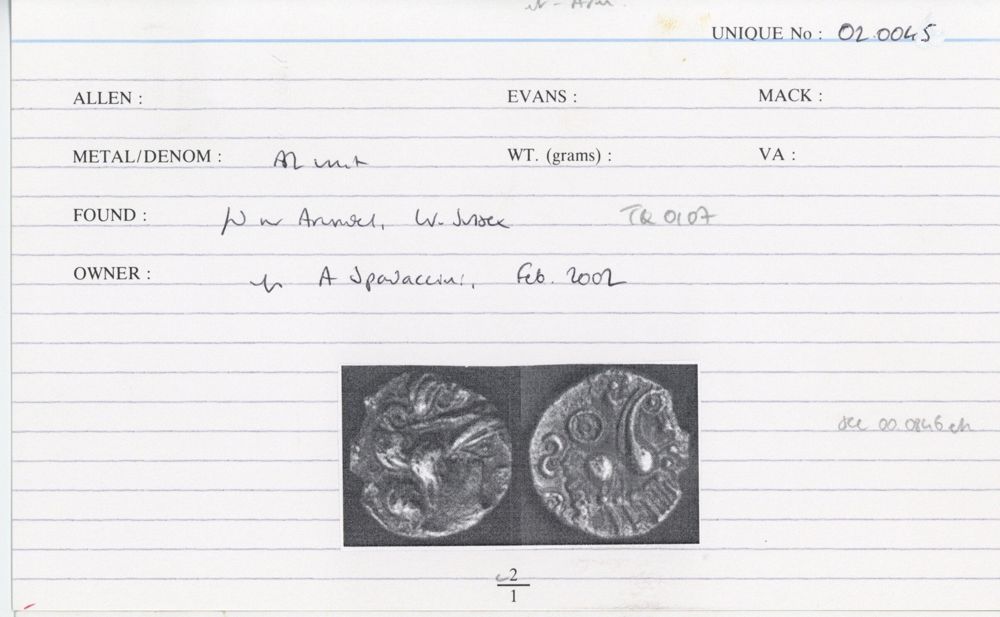 UNIQUE No : 02.0045
ALLEN : EVANS : MACK :
METAL/DENOM : AR unit WT. (grams) : VA :
FOUND : Arundel, W. Sussex TQ 0107
OWNER : A Spadaccini, Feb. 2002
see 00.0846 etc
2
1